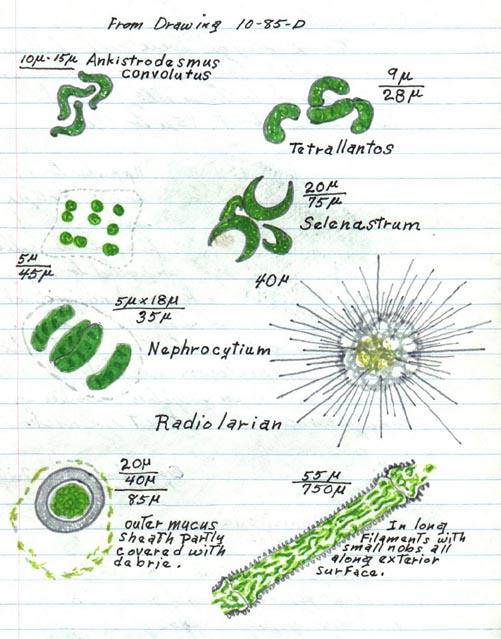 From Drawing 10-85-D
10μ-15μ Ankistrodesmus
convolutus
9μ
28μ
Tetrallantos
20μ
75μ
Selenastrum
5μ
45μ
40μ
5μ x 18μ
35μ
Nephrocytium
Radiolarian
20μ
40μ
85μ
outer mucus
sheath partly
covered with
debrie.
55μ
750μ
In long
Filaments with
small nobs all
along exterior
surface.